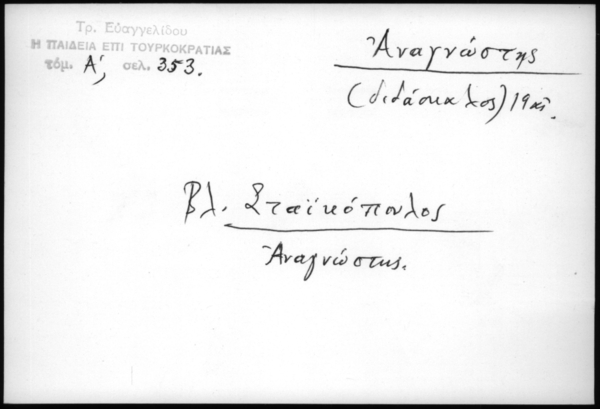 Τρ. Εὐαγγελίδου
Η ΠΑΙΔΕΙΑ ΕΠΙ ΤΟΥΡΚΟΚΡΑΤΙΑΣ
τόμ. Α', σελ. 353.
Ἀναγνώστης
(διδάσκαλος) 19 αἰ.
Βλ. Σταϊκόπουλος
Ἀναγνώστης.